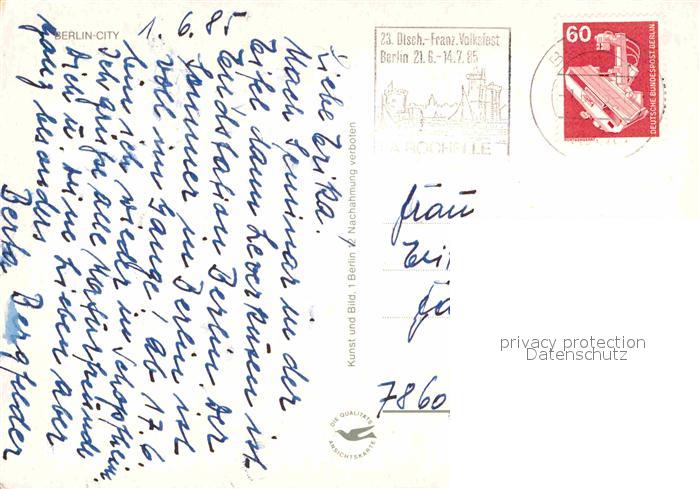 BERLIN-CITY
1. 6. 85
Liebe Erika.
Nach Seminar in der
Eifel dann Leverkusen ist
Endstation Berlin. Der
Sommer in Berlin ist
voll im Gange, ab 17.6
bin ich wieder in Schopfheim.
Ich grüße alle Naturfreunde
Dich u. Deine Lieben aber
ganz besonders
Berta Bergfelder
Kunst und Bild, 1 Berlin 12 Nachahmung verboten
DIE QUALITÄTS
ANSICHTSKARTE
23. Dtsch.-Franz. Volksfest
Berlin 21. 6. - 14. 7. 85
LA ROCHELLE
60
DEUTSCHE BUNDESPOST BERLIN
Frau
7860
privacy protection
Datenschutz